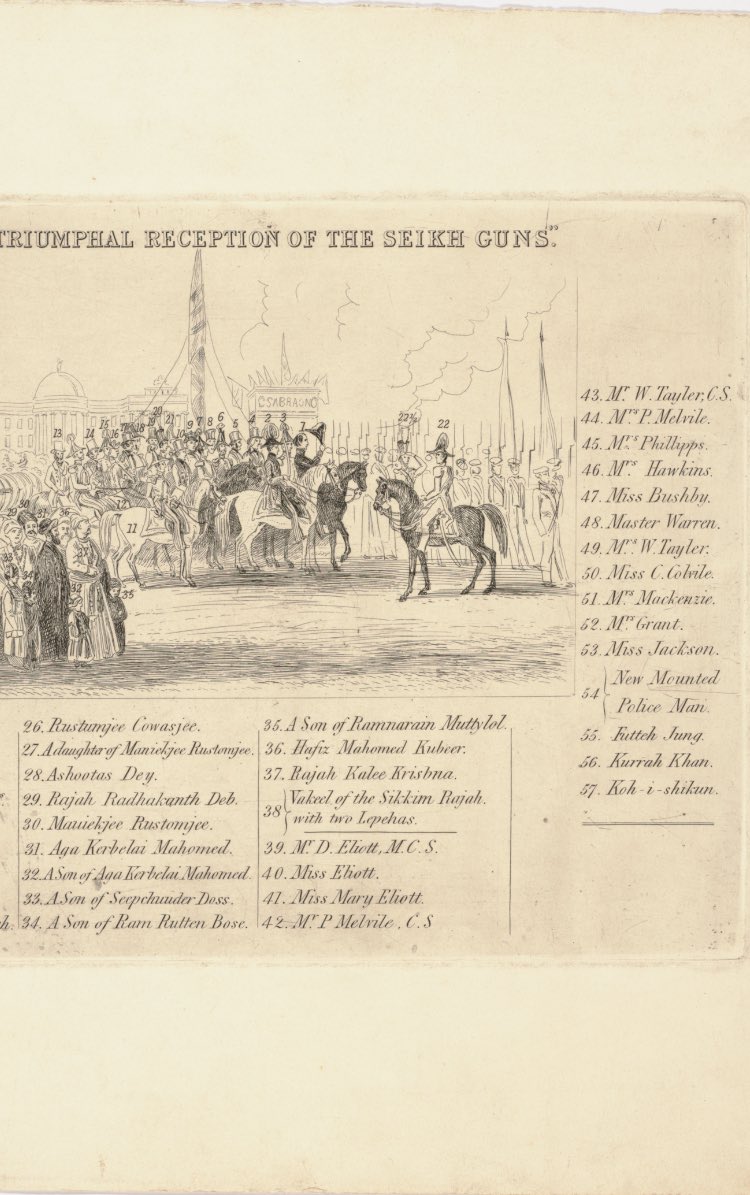 TRIUMPHAL RECEPTION OF THE SEIKH GUNS."
SABRAON
13
14
15
16
17
18
19
20
21
10
9
7
8
6
5
4
2
3
1
22½
22
12
11
29
30
31
36
33
34
32
35
26. Rustumjee Cowasjee.
27. A daughter of Maniekjee Rustomjee.
28. Ashootas Dey.
29. Rajah Radhakanth Deb.
30. Maniekjee Rustomjee.
31. Aga Kerbelai Mahomed.
32. A Son of Aga Kerbelai Mahomed.
33. A Son of Seepchunder Doss.
h. 34. A Son of Ram Rutten Bose.
35. A Son of Ramnarain Muttylol.
36. Hafiz Mahomed Kubeer.
37. Rajah Kalee Krisbna.
38 Vakeel of the Sikkim Rajah.
with two Lepehas.
39. Mr. D. Eliott, M.C.S.
40. Miss Eliott.
41. Miss Mary Eliott.
42. Mr. P Melvile, C.S
43. Mr. W. Tayler, C.S.
44. Mrs. P. Melvile.
45. Mrs. Phillipps.
46. Mrs. Hawkins.
47. Miss Bushby.
48. Master Warren.
49. Mrs. W. Tayler.
50. Miss C. Colvile.
51. Mrs. Mackenzie.
52. Mrs. Grant.
53. Miss Jackson.
54 New Mounted
Police Man.
55. Futteh Jung.
56. Kurrah Khan.
57. Koh-i-shikun.